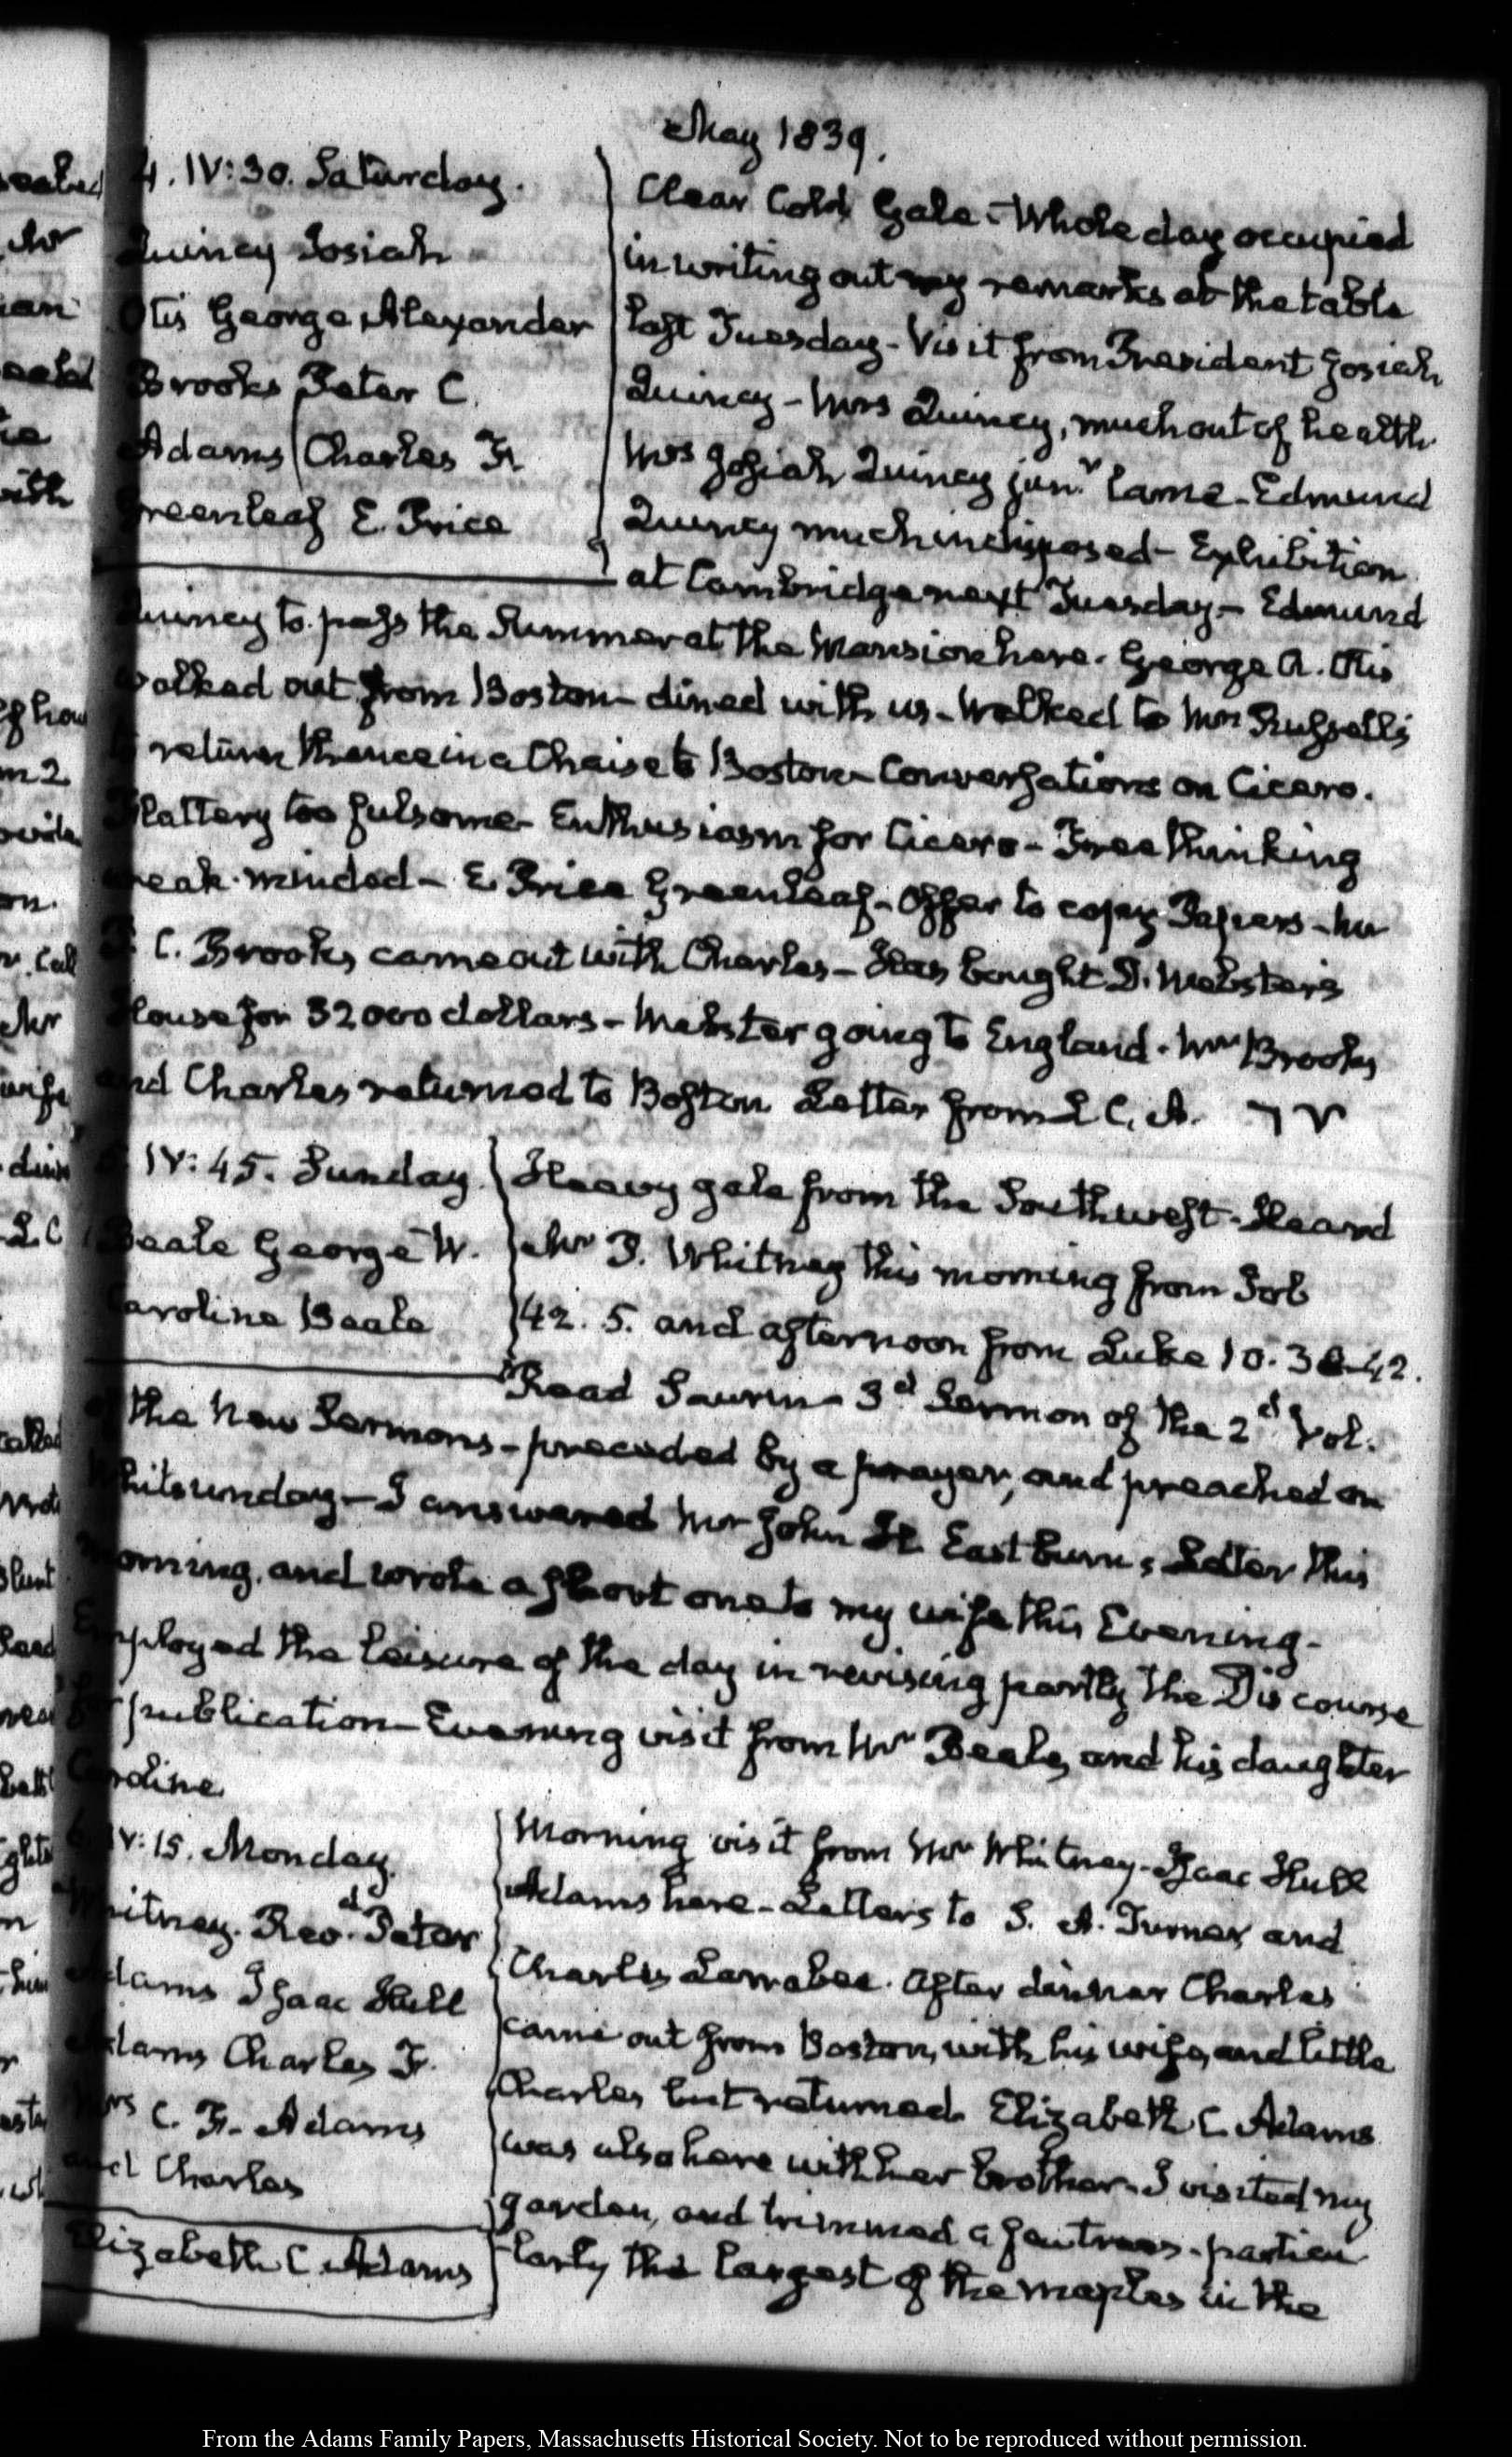 May 1839.
4. IV:30. Saturday.
Quincy Josiah
Otis George Alexander
Brooks Peter C.
Adams Charles F.
Greenleaf E. Price
Clear Cold Gale - Whole day occupied
in writing out my remarks at the table
last Tuesday - Visit from President Josiah
Quincy - Mrs Quincy, much out of health
Mrs Josiah Quincy junr. lame - Edmund
Quincy much indisposed - Exhibition
at Cambridge next Tuesday - Edmund
Quincy to pass the Summer at the Mansion here. George A. Otis
walked out from Boston - dined with us - walked to Mr Russell's
to return thence in a Chaise to Boston - Conversations on Cicero.
Flattery too fulsome - Enthusiasm for Cicero - Free thinking
weak-minded - E. Price Greenleaf - Offer to copy Papers - Mr
P. C. Brooks came out with Charles - Has bought D. Webster's
House for 32000 dollars - Webster going to England. Mr Brooks
and Charles returned to Boston Letter from L C. A.
5. IV:45. Sunday.
Beale George W.
Caroline Beale
Heavy gale from the Southwest - Heard
Mr P. Whitney this morning from Job
42. 5. and afternoon from Luke 10. 38-42.
Read Saurin - 3d Sermon of the 2d Vol.
of the New Sermons - preceded by a prayer, and preached on
Whitsunday - I answered Mr John H. Eastburn's Letter this
morning, and wrote a short one to my wife this Evening -
Employed the leisure of the day in revising partly the Discourse
for publication - Evening visit from Mr Beale, and his daughter
Caroline
6. IV:15. Monday.
Whitney. Revd. Peter
Adams Isaac Hull
Adams Charles F.
Mrs C. F. Adams
and Charles
Elizabeth C. Adams
Morning visit from Mr Whitney - Isaac Hull
Adams here - Letters to S. A. Turner and
Charles Larrabee. After dinner Charles
came out from Boston, with his wife, and little
Charles but returned. Elizabeth C. Adams
was also here with her brother - I visited my
garden, and trimmed a few trees - particu
larly the largest of the maples in the
From the Adams Family Papers, Massachusetts Historical Society. Not to be reproduced without permission.